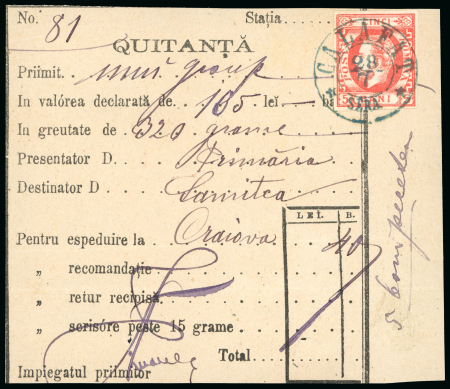 No. 81 Stația
QUITANȚĂ
Priimit unŭ group
In valórea declarată de 165 lei b
In greutate de 320 grame
Presentator D Primăria
Destinator D
Craiova
LEI. B.
Pentru espeduire la 40
„ recomandație
„ retur recipisă
„ scrisóre peste 15 grame
Total
Impiegatul priimitor
CINCI
POSTA
5 BANI 5
CALAFAT
28
SERA
5